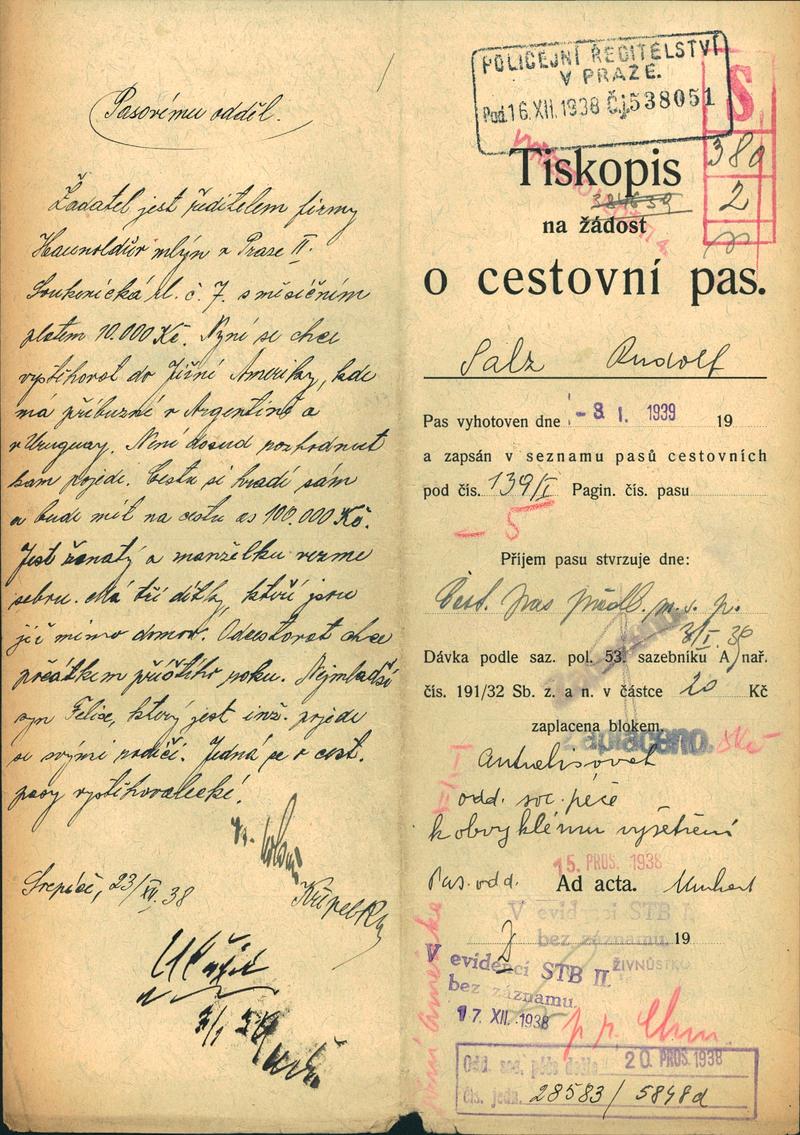 Pasovému odděl.
Žadatel jest ředitelem firmy
Haunoldův mlýn v Praze II.
Soukenická ul. č. 7. s měsíčním
platem 10.000 Kč. Nyní se chce
vystěhovat do Jižní Ameriky, kde
má příbuzné v Argentině a
v Uruguay. Není dosud rozhodnut
kam pojede. Cestu si hradí sám
a bude mít na cestu as 100.000 Kč.
Jest ženatý a manželku vezme
sebou. Má tři dítky, kteří jsou
již mimo domov. Odcestovat chce
počátkem příštího roku. Nejmladší
syn Felix, který jest inž. pojede
se svými rodiči. Jedná se o cest.
pasy vystěhovalecké.
Srepič, 23/XII. 38
Křepelka
POLICEJNÍ ŘEDITELSTVÍ
V PRAZE.
Pod. 16. XII. 1938 Čj. 538051
S
380
2
Tiskopis
na žádost
o cestovní pas.
Salz Rudolf
Pas vyhotoven dne -3 I. 1939 19
a zapsán v seznamu pasů cestovních
pod čís. 139/I Pagin. čís. pasu
- 5
Příjem pasu stvrzuje dne:
Cest. pas předl. m. v. p.
3/I. 39
Dávka podle saz. pol. 53. sazebníku A) nař.
čís. 191/32 Sb. z. a n. v částce 20 Kč
zaplacena blokem.
Zaplaceno.
odd. soc. péče
k obvyklému vyšetření
15. PROS. 1938
Pas. odd. Ad acta.
V evidenci STB I.
bez záznamu. 19
V evidenci STB II. ŽIVNOSTK
bez záznamu.
17 XII. 1938
Jižní Amerika
Odd. soc. péče došlo 20 PROS. 1938
čís. jedn. 28583 / 5848d